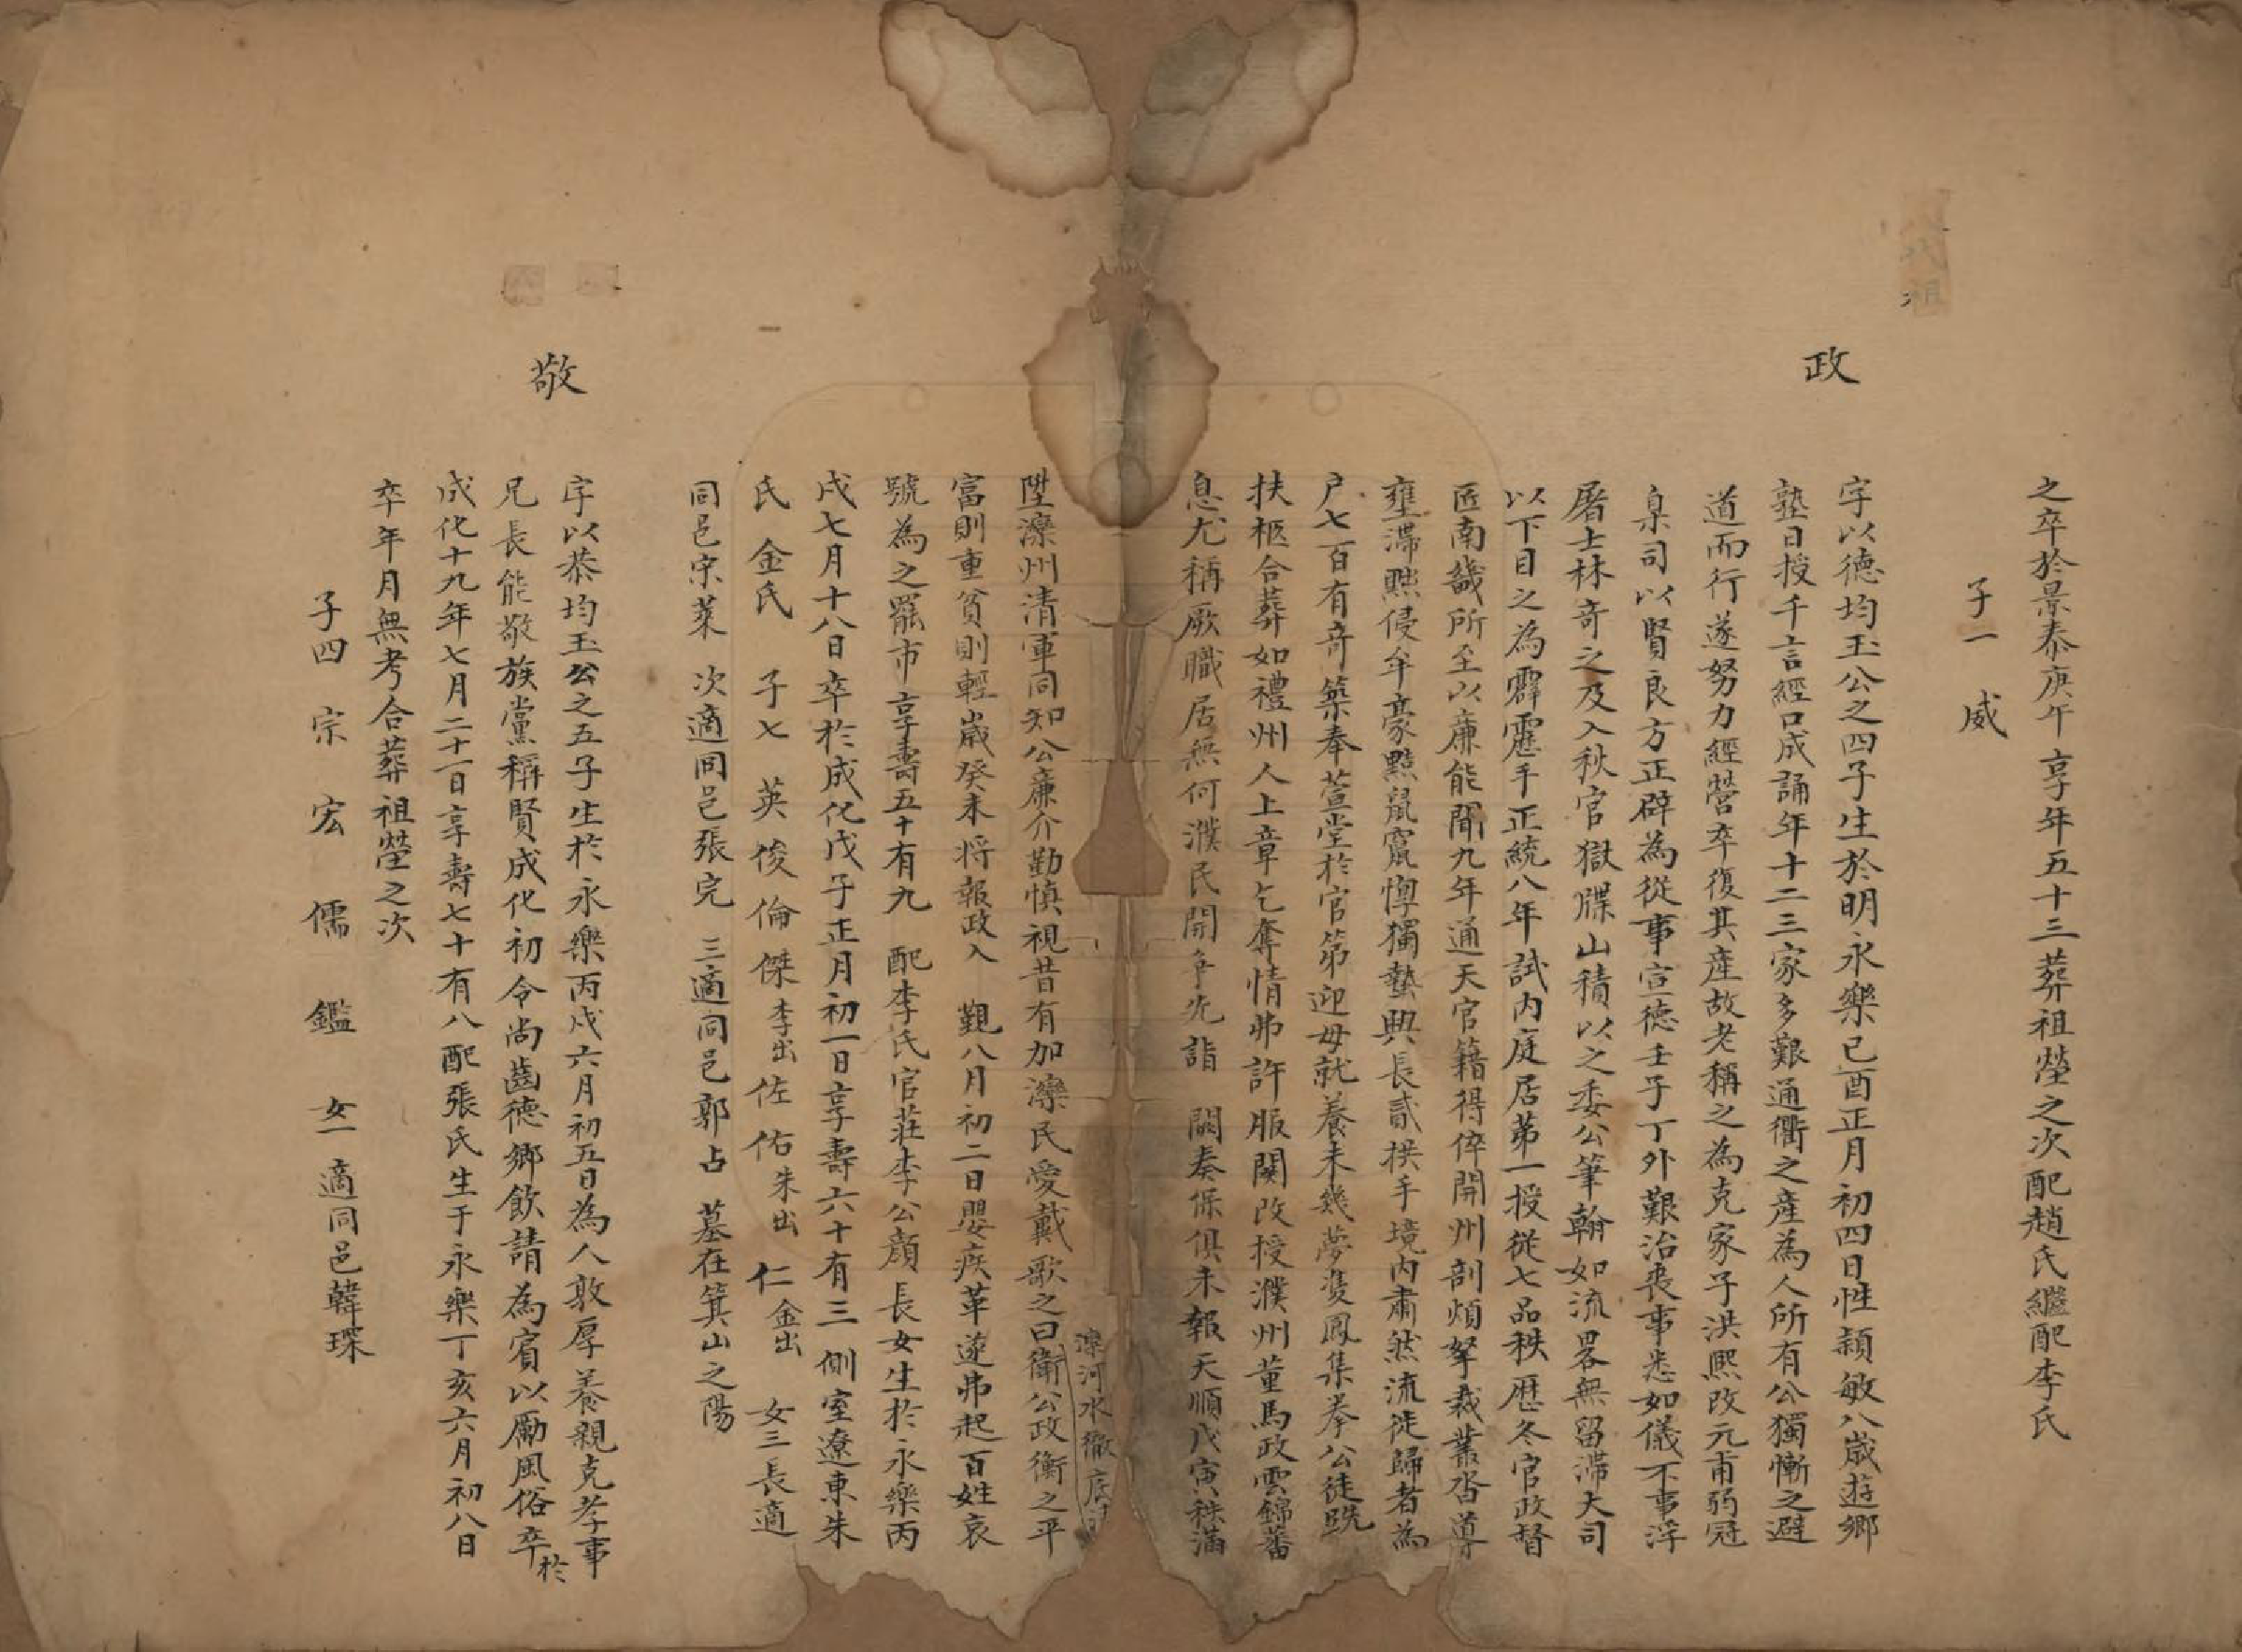 之卒於景泰庚午享年五十三葬祖塋之次配趙氏繼配李氏
子一 威
代祖
政
字以德均玉公之四子生於明永樂己酉正月初四日性穎敏八歲遊鄉
塾日授千言經口成誦年十二三家多艱通衢之產為人所有公獨慚之避
道而行遂努力經營卒復其產故老稱之為克家子洪熙改元甫弱冠
臬司以賢良方正辟為從事宣德壬子丁外艱治喪事悉如儀不事浮
屠士林奇之及入秋官獄牒山積以之委公筆翰如流畧無留滯大司
以下目之為霹靂手正統八年試內庭居第一授從七品秩歷冬官政督
匠南畿所至以廉能聞九年通天官籍得倅開州剖煩拏裁叢沓導
壅滯黜侵牟豪黠鼠竄惸獨蟄興長貳拱手境內肅然流徙歸者為
户七百有奇築奉萱堂於官第迎母就養未幾夢隻鳳集拳公徒跣
扶柩合葬如禮州人上章乞奪情弗許服闋改授濮州董馬政雲錦蕃
息尤稱厥職居無何濮民開爭先詣 闕奏保俱未報天順戊寅秩滿
陞灤州清軍同知公廉介勤慎視昔有加灤民愛戴歌之曰衛公政衡之平
灤河水徹底
富則重貧則輕歲癸未將報政入 覲八月初二日嬰疾革遂弗起百姓哀
號為之罷市享壽五十有九 配李氏官莊李公顏長女生於永樂丙
戌七月十八日卒於成化戊子正月初一日享壽六十有三 側室遼東朱
氏 金氏 子七 英俊倫傑李出佐佑朱出 仁金出 女三長適
同邑宋萊 次適同邑張完 三適同邑郭占 墓在箕山之陽
敬
字以恭均玉公之五子生於永樂丙戌六月初五日為人敦厚養親克孝事
兄長能敬族黨稱賢成化初令尚齒德鄉飲請為賓以勵風俗卒於
成化十九年七月二十一日享壽七十有八配張氏生于永樂丁亥六月初八日
卒年月無考合葬祖塋之次
子四 宗 宏 儒 鑑 女一適同邑韓琛